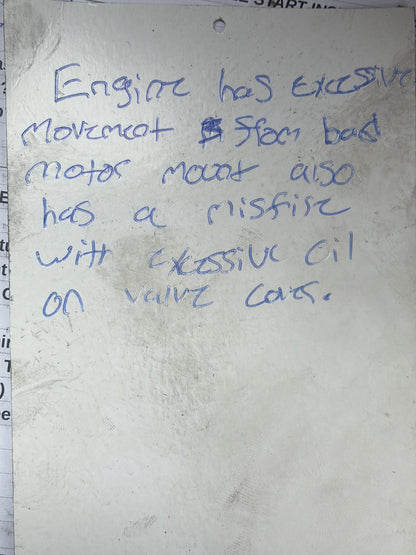 START INS
Engine has Excessive
Movement from bad
motor mount also
has a misfire
with excessive oil
on valve cover.